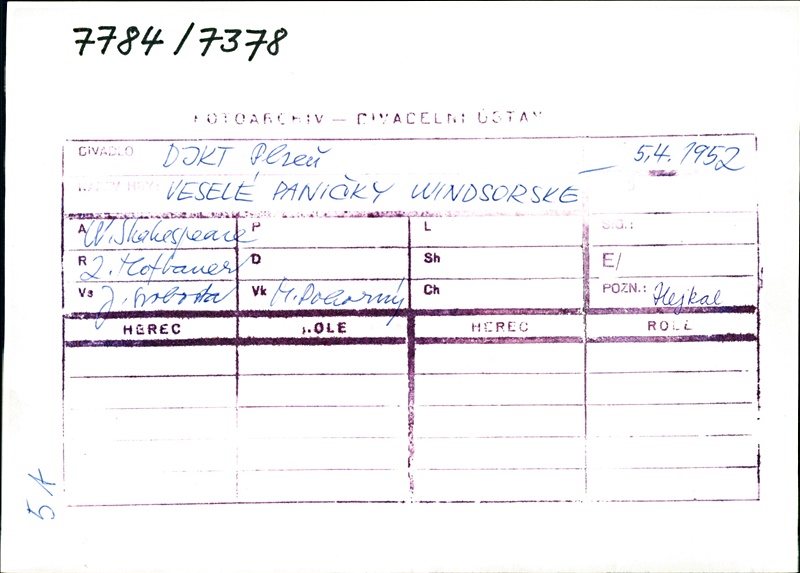 7784/7378
FOTOARCHIV — DIVADELNÍ ÚSTAV
DIVADLO DJKT Plzeň 5,4. 1952
VESELÉ PANIČKY WINDSORSKÉ
A W. Shakespeare P L
R Z. Hofbauer D Sh E/
Vs J. Svoboda Vk M. Pokorný Ch POZN.: Hejkal
HEREC ROLE HEREC ROLE
5A